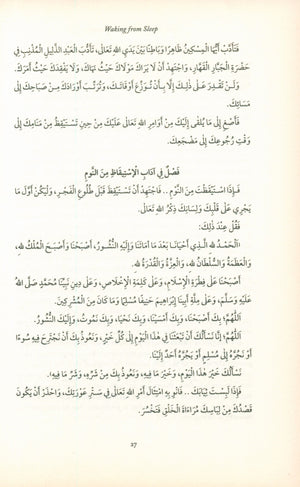 Waking from Sleep
فَتَأَدَّبْ أَيُّهَا الْمِسْكِينُ ظَاهِرًا وَبَاطِنًا بَيْنَ يَدَيِ اللهِ تَعَالَى، تَأَدُّبَ الْعَبْدِ الذَّلِيلِ الْمُذْنِبِ فِي
حَضْرَةِ الْجَبَّارِ الْقَهَّارِ، وَاجْتَهِدْ أَنْ لَا يَرَاكَ مَوْلَاكَ حَيْثُ نَهَاكَ، وَلَا يَفْقِدَكَ حَيْثُ أَمَرَكَ.
وَلَنْ تَقْدِرَ عَلَى ذَلِكَ إِلَّا بِأَنْ تُوَزِّعَ أَوْقَاتَكَ، وَتُرَتِّبَ أَوْرَادَكَ مِنْ صَبَاحِكَ إِلَى
مَسَائِكَ.
فَأَصْغِ إِلَى مَا يُلْقَى إِلَيْكَ مِنْ أَوَامِرِ اللهِ تَعَالَى عَلَيْكَ مِنْ حِينِ تَسْتَيْقِظُ مِنْ مَنَامِكَ إِلَى
وَقْتِ رُجُوعِكَ إِلَى مَضْجَعِكَ.
فَصْلٌ فِي آدَابِ الْاِسْتِيقَاظِ مِنَ النَّوْمِ
فَإِذَا اسْتَيْقَظْتَ مِنَ النَّوْمِ .. فَاجْتَهِدْ أَنْ تَسْتَيْقِظَ قَبْلَ طُلُوعِ الْفَجْرِ، وَلْيَكُنْ أَوَّلَ مَا
يَجْرِي عَلَى قَلْبِكَ وَلِسَانِكَ ذِكْرُ اللهِ تَعَالَى.
فَقُلْ عِنْدَ ذَلِكَ:
الْحَمْدُ لِلهِ الَّذِي أَحْيَانَا بَعْدَ مَا أَمَاتَنَا وَإِلَيْهِ النُّشُورُ، أَصْبَحْنَا وَأَصْبَحَ الْمُلْكُ لِلهِ،
وَالْعَظَمَةُ وَالسُّلْطَانُ لِلهِ، وَالْعِزَّةُ وَالْقُدْرَةُ لِلهِ.
أَصْبَحْنَا عَلَى فِطْرَةِ الْإِسْلَامِ، وَعَلَى كَلِمَةِ الْإِخْلَاصِ، وَعَلَى دِينِ نَبِيِّنَا مُحَمَّدٍ صَلَّى اللهُ
عَلَيْهِ وَسَلَّمَ، وَعَلَى مِلَّةِ أَبِينَا إِبْرَاهِيمَ حَنِيفًا مُسْلِمًا وَمَا كَانَ مِنَ الْمُشْرِكِينَ.
اَللَّهُمَّ؛ بِكَ أَصْبَحْنَا، وَبِكَ أَمْسَيْنَا، وَبِكَ نَحْيَا، وَبِكَ نَمُوتُ، وَإِلَيْكَ النُّشُورُ.
اَللَّهُمَّ؛ إِنَّا نَسْأَلُكَ أَنْ تَبْعَثَنَا فِي هَذَا الْيَوْمِ إِلَى كُلِّ خَيْرٍ، وَنَعُوذُ بِكَ أَنْ نَجْتَرِحَ فِيهِ سُوءًا
أَوْ نَجُرَّهُ إِلَى مُسْلِمٍ أَوْ يَجُرَّهُ أَحَدٌ إِلَيْنَا.
نَسْأَلُكَ خَيْرَ هَذَا الْيَوْمِ، وَخَيْرَ مَا فِيهِ، وَنَعُوذُ بِكَ مِنْ شَرِّهِ، وَشَرِّ مَا فِيهِ.
فَإِذَا لَبِسْتَ ثِيَابَكَ .. فَانْوِ بِهِ امْتِثَالَ أَمْرِ اللهِ تَعَالَى فِي سَتْرِ عَوْرَتِكَ، وَاحْذَرْ أَنْ يَكُونَ
قَصْدُكَ مِنْ لِبَاسِكَ مُرَاءَاةَ الْخَلْقِ فَتَخْسَرَ.
27